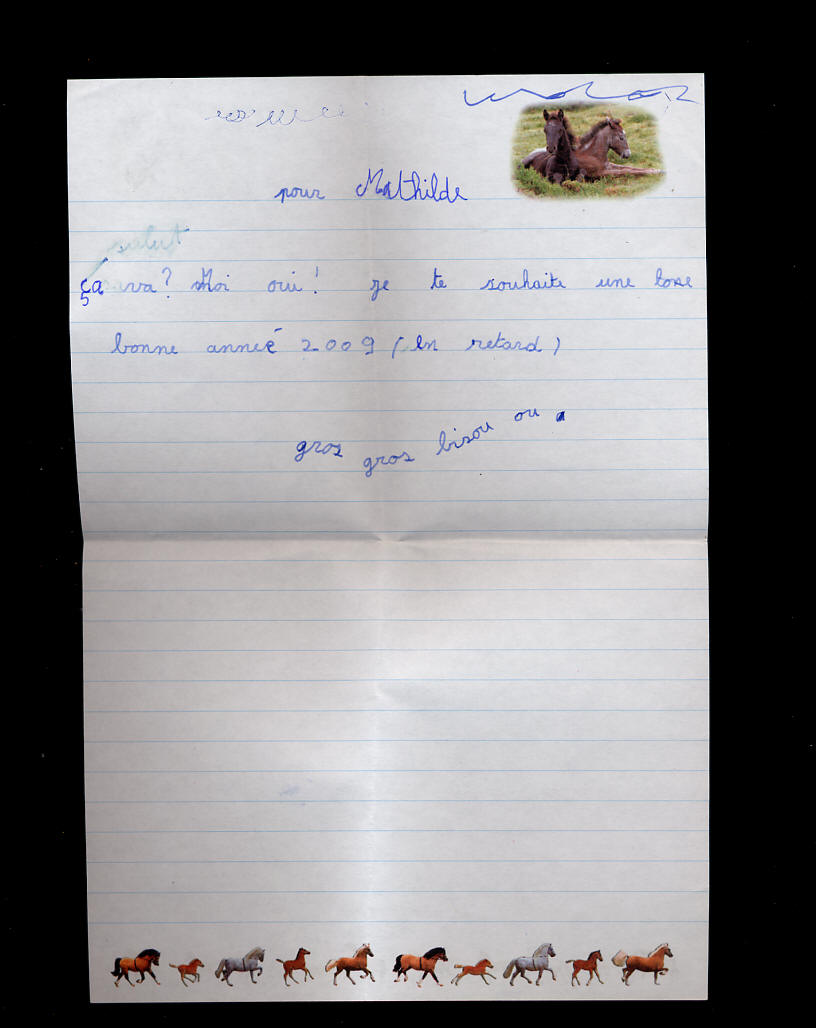 pour Mathilde
salut
ça va? Moi oui! je te souhaite une
bonne anneé 2009 (En retard)
gros gros bisou ou